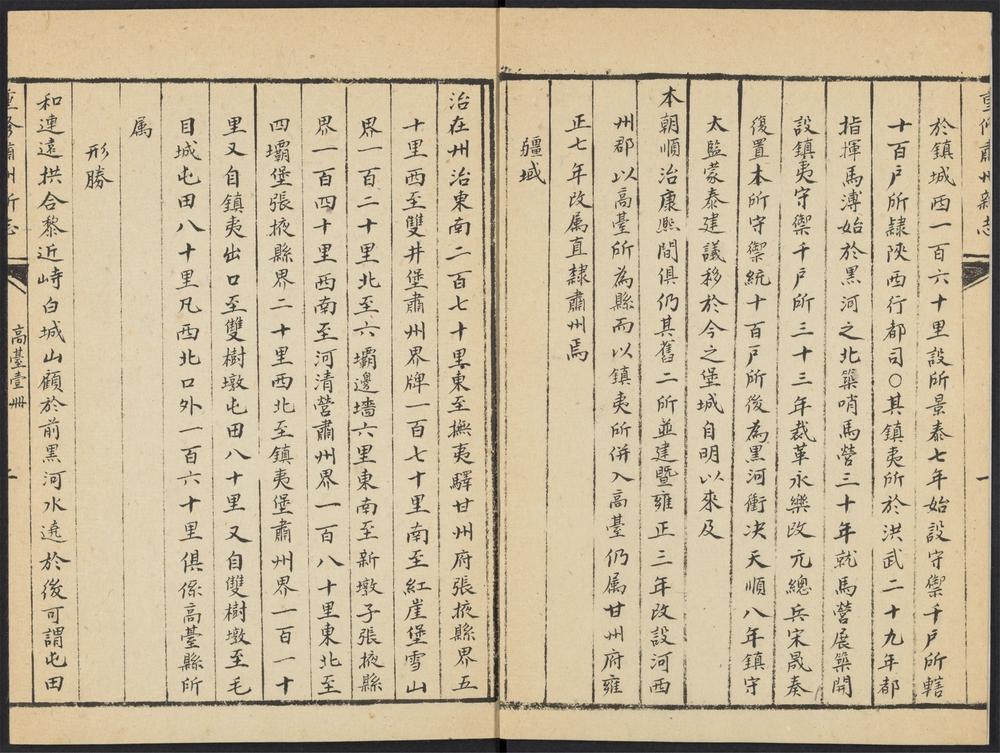 重修肅州新志
於鎮城西一百六十里設所景泰七年始設守禦千戶所轄
十百戶所隸陝西行都司○其鎮夷所於洪武二十九年都
指揮馬溥始於黑河之北築哨馬營三十年就馬營展築開
設鎮夷守禦千戶所三十三年裁革永樂改元總兵宋晟奏
復置本所守禦統十百戶所後為黑河衝决天順八年鎮守
太監蒙泰建議移於今之堡城自明以來及
本朝順治康熙間俱仍其舊二所並建暨雍正三年改設河西
州郡以高臺所為縣而以鎮夷所併入高臺仍属甘州府雍
正七年改属直隸肅州焉
疆域
治在州治東南二百七十里東至撫夷驛甘州府張掖縣界五
十里西至雙井堡肅州界牌一百七十里南至紅崖堡雪山
界一百二十里北至六壩邊墻六里東南至新墩子張掖縣
界一百四十里西南至河清營肅州界一百八十里東北至
四壩堡張掖縣界二十里西北至鎮夷堡肅州界一百一十
里又自鎮夷出口至雙樹墩屯田八十里又自雙樹墩至毛
目城屯田八十里凡西北口外一百六十里俱係高臺縣所
属
形勝
和連遠拱合黎近峙白城山顧於前黑河水遶於後可謂屯田
重修肅州新志
高臺壹冊
一